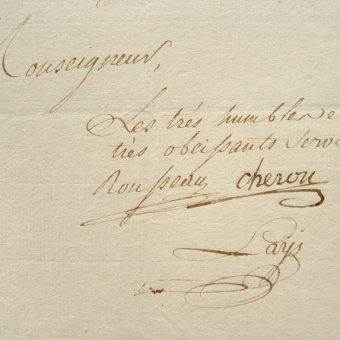 Monseigneur,
Les trés humbles e
trés obeissants Serv
Rousseau cheron
Laÿs